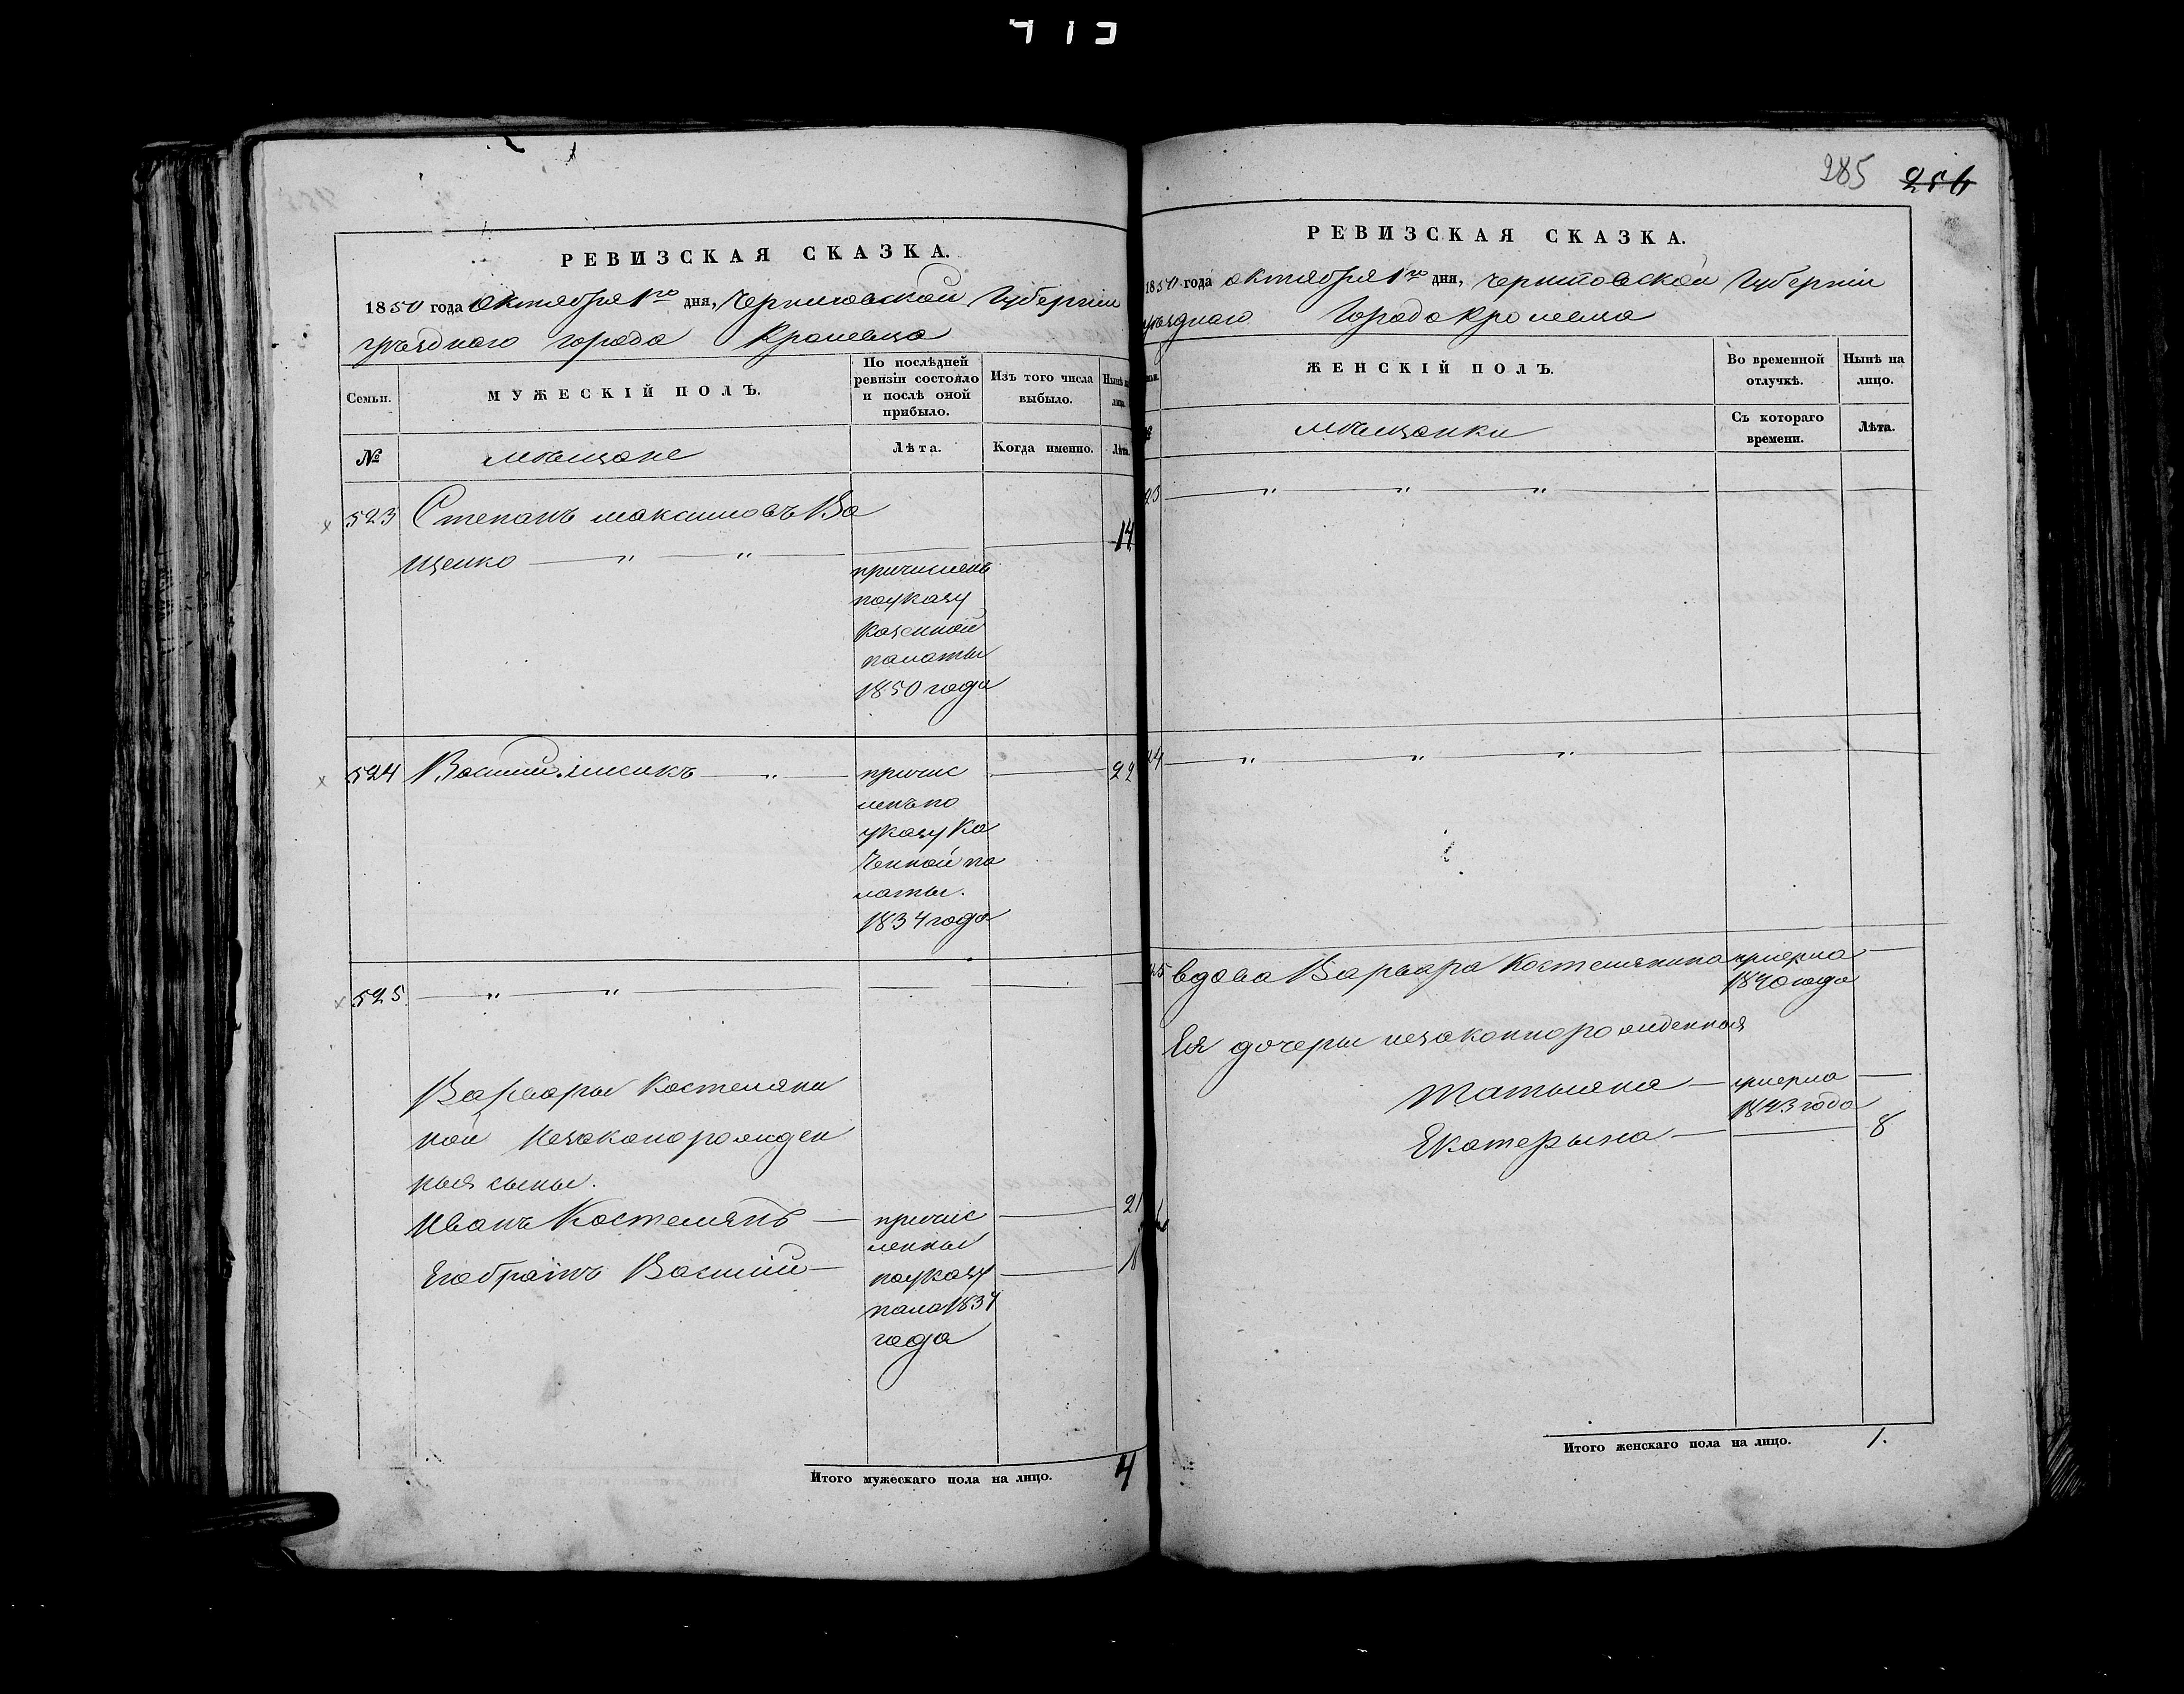 285 256
РЕВИЗСКАЯ СКАЗКА.
1850 года октября 1го дня, Черниговской Губернии
уѣзднаго города Кролевца
Семьи.
МУЖЕСКІЙ ПОЛЪ.
По послѣдней
ревизіи состояло
и послѣ оной
прибыло.
Изъ того числа
выбыло.
Нынѣ на
лицо.
№
мѣщане
Лѣта.
Когда именно.
Лѣта.
523 Степанъ Максимовъ Ва
щенко 14
причисленъ
поуказу
казенной
палаты
1850 года
524 Василій Лисикъ причис 22
ленъ по
указу Ка
зенной па
латы.
1834 года
525
Варвары Костеляни
ной незаконорожден
ныя сыны.
Иванъ Костелянъ причис 21
ленны
Его братъ Василій поуказу 18
пала 1834
года
Итого мужескаго пола на лицо. 4
РЕВИЗСКАЯ СКАЗКА.
1850 года октября 1го дня, Черниговской Губерніи
уѣзднаго Города Кролевца
ЖЕНСКІЙ ПОЛЪ.
Во временной
отлучкѣ.
Нынѣ на
лицо.
мѣщанки
Съ котораго
времени.
Лѣта.
23
24
25 вдова Варвара Костелянина умерла
1840 года
Ея дочеры незаконнорожденныя
Татьяна умерла
1843 года
Екатерына 8
Итого женскаго пола на лицо. 1.